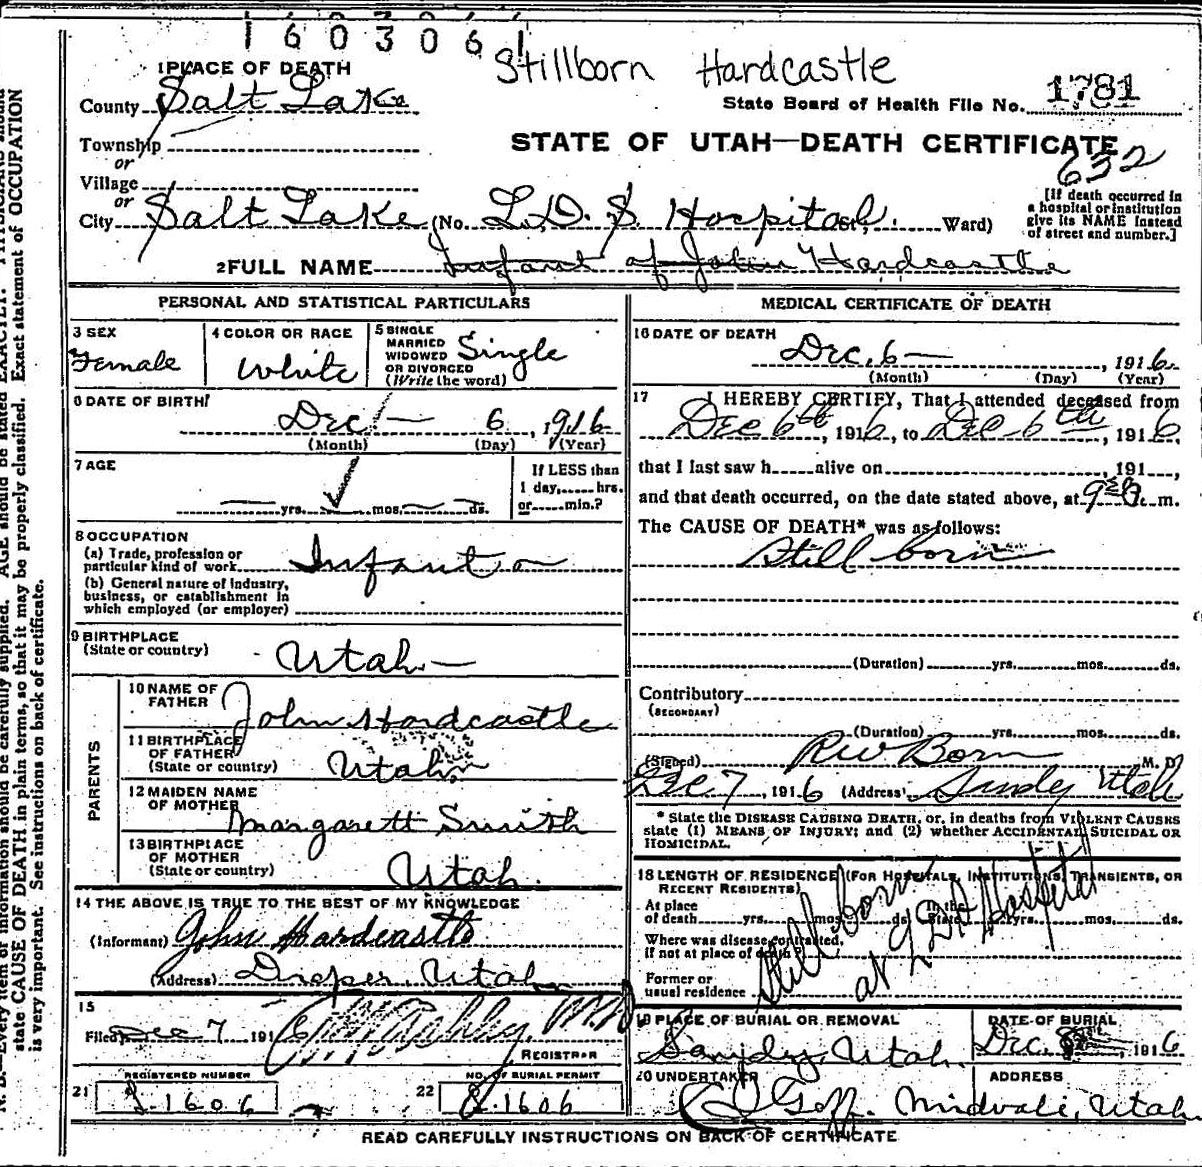 1603061
Stillborn Hardcastle
1 PLACE OF DEATH
County Salt Lake
State Board of Health File No. 1781
Township
or
STATE OF UTAH—DEATH CERTIFICATE
632
Village
or
City Salt Lake (No. L.D.S. Hospital. Ward)
[If death occurred in
a hospital or institution
give its NAME instead
of street and number.]
2 FULL NAME Infant of John Hardcastle
PERSONAL AND STATISTICAL PARTICULARS
3 SEX
Female
4 COLOR OR RACE
White
5 SINGLE
MARRIED
WIDOWED
OR DIVORCED
(Write the word)
Single
6 DATE OF BIRTH
Dec. 6, 1916
(Month) (Day) (Year)
7 AGE
yrs. mos. ds.
If LESS than
1 day, hrs.
or min.?
8 OCCUPATION
(a) Trade, profession or
particular kind of work Infant
(b) General nature of industry,
business, or establishment in
which employed (or employer)
9 BIRTHPLACE
(State or country)
Utah
PARENTS
10 NAME OF
FATHER
John Hardcastle
11 BIRTHPLACE
OF FATHER
(State or country)
Utah
12 MAIDEN NAME
OF MOTHER
Margarett Smith
13 BIRTHPLACE
OF MOTHER
(State or country)
Utah.
14 THE ABOVE IS TRUE TO THE BEST OF MY KNOWLEDGE
(Informant) John Hardcastle
(Address) Draper, Utah
15
Filed Dec 7 1916 M.D.
REGISTRAR
REGISTERED NUMBER
21 1606
NO. OF BURIAL PERMIT
22 1606
MEDICAL CERTIFICATE OF DEATH
16 DATE OF DEATH
Dec. 6, 1916.
(Month) (Day) (Year)
17 I HEREBY CERTIFY, That I attended deceased from
Dec 6th, 1916, to Dec 6th, 1916
that I last saw h alive on , 191 ,
and that death occurred, on the date stated above, at m.
The CAUSE OF DEATH* was as follows:
Still born
(Duration) yrs. mos. ds.
Contributory
(SECONDARY)
(Duration) yrs. mos. ds.
(Signed) RW Born M. D.
Dec. 7, 1916 (Address) Sandy Utah
* State the DISEASE CAUSING DEATH, or, in deaths from VIOLENT CAUSES
state (1) MEANS OF INJURY; and (2) whether ACCIDENTAL, SUICIDAL OR
HOMICIDAL.
18 LENGTH OF RESIDENCE (FOR HOSPITALS, INSTITUTIONS, TRANSIENTS, OR
RECENT RESIDENTS)
At place
of death yrs. mos. ds.
In the
State yrs. mos. ds.
Where was disease contracted,
if not at place of death?
Former or
usual residence
Still born
at LDS Hospital
19 PLACE OF BURIAL OR REMOVAL
Sandy, Utah
DATE OF BURIAL
Dec. 1916
20 UNDERTAKER
Goff.
ADDRESS
Midvale, Utah
READ CAREFULLY INSTRUCTIONS ON BACK OF CERTIFICATE
N. B.—Every item of information should be carefully supplied. AGE should be stated EXACTLY. PHYSICIANS should
state CAUSE OF DEATH in plain terms, so that it may be properly classified. Exact statement of OCCUPATION
is very important. See instructions on back of certificate.